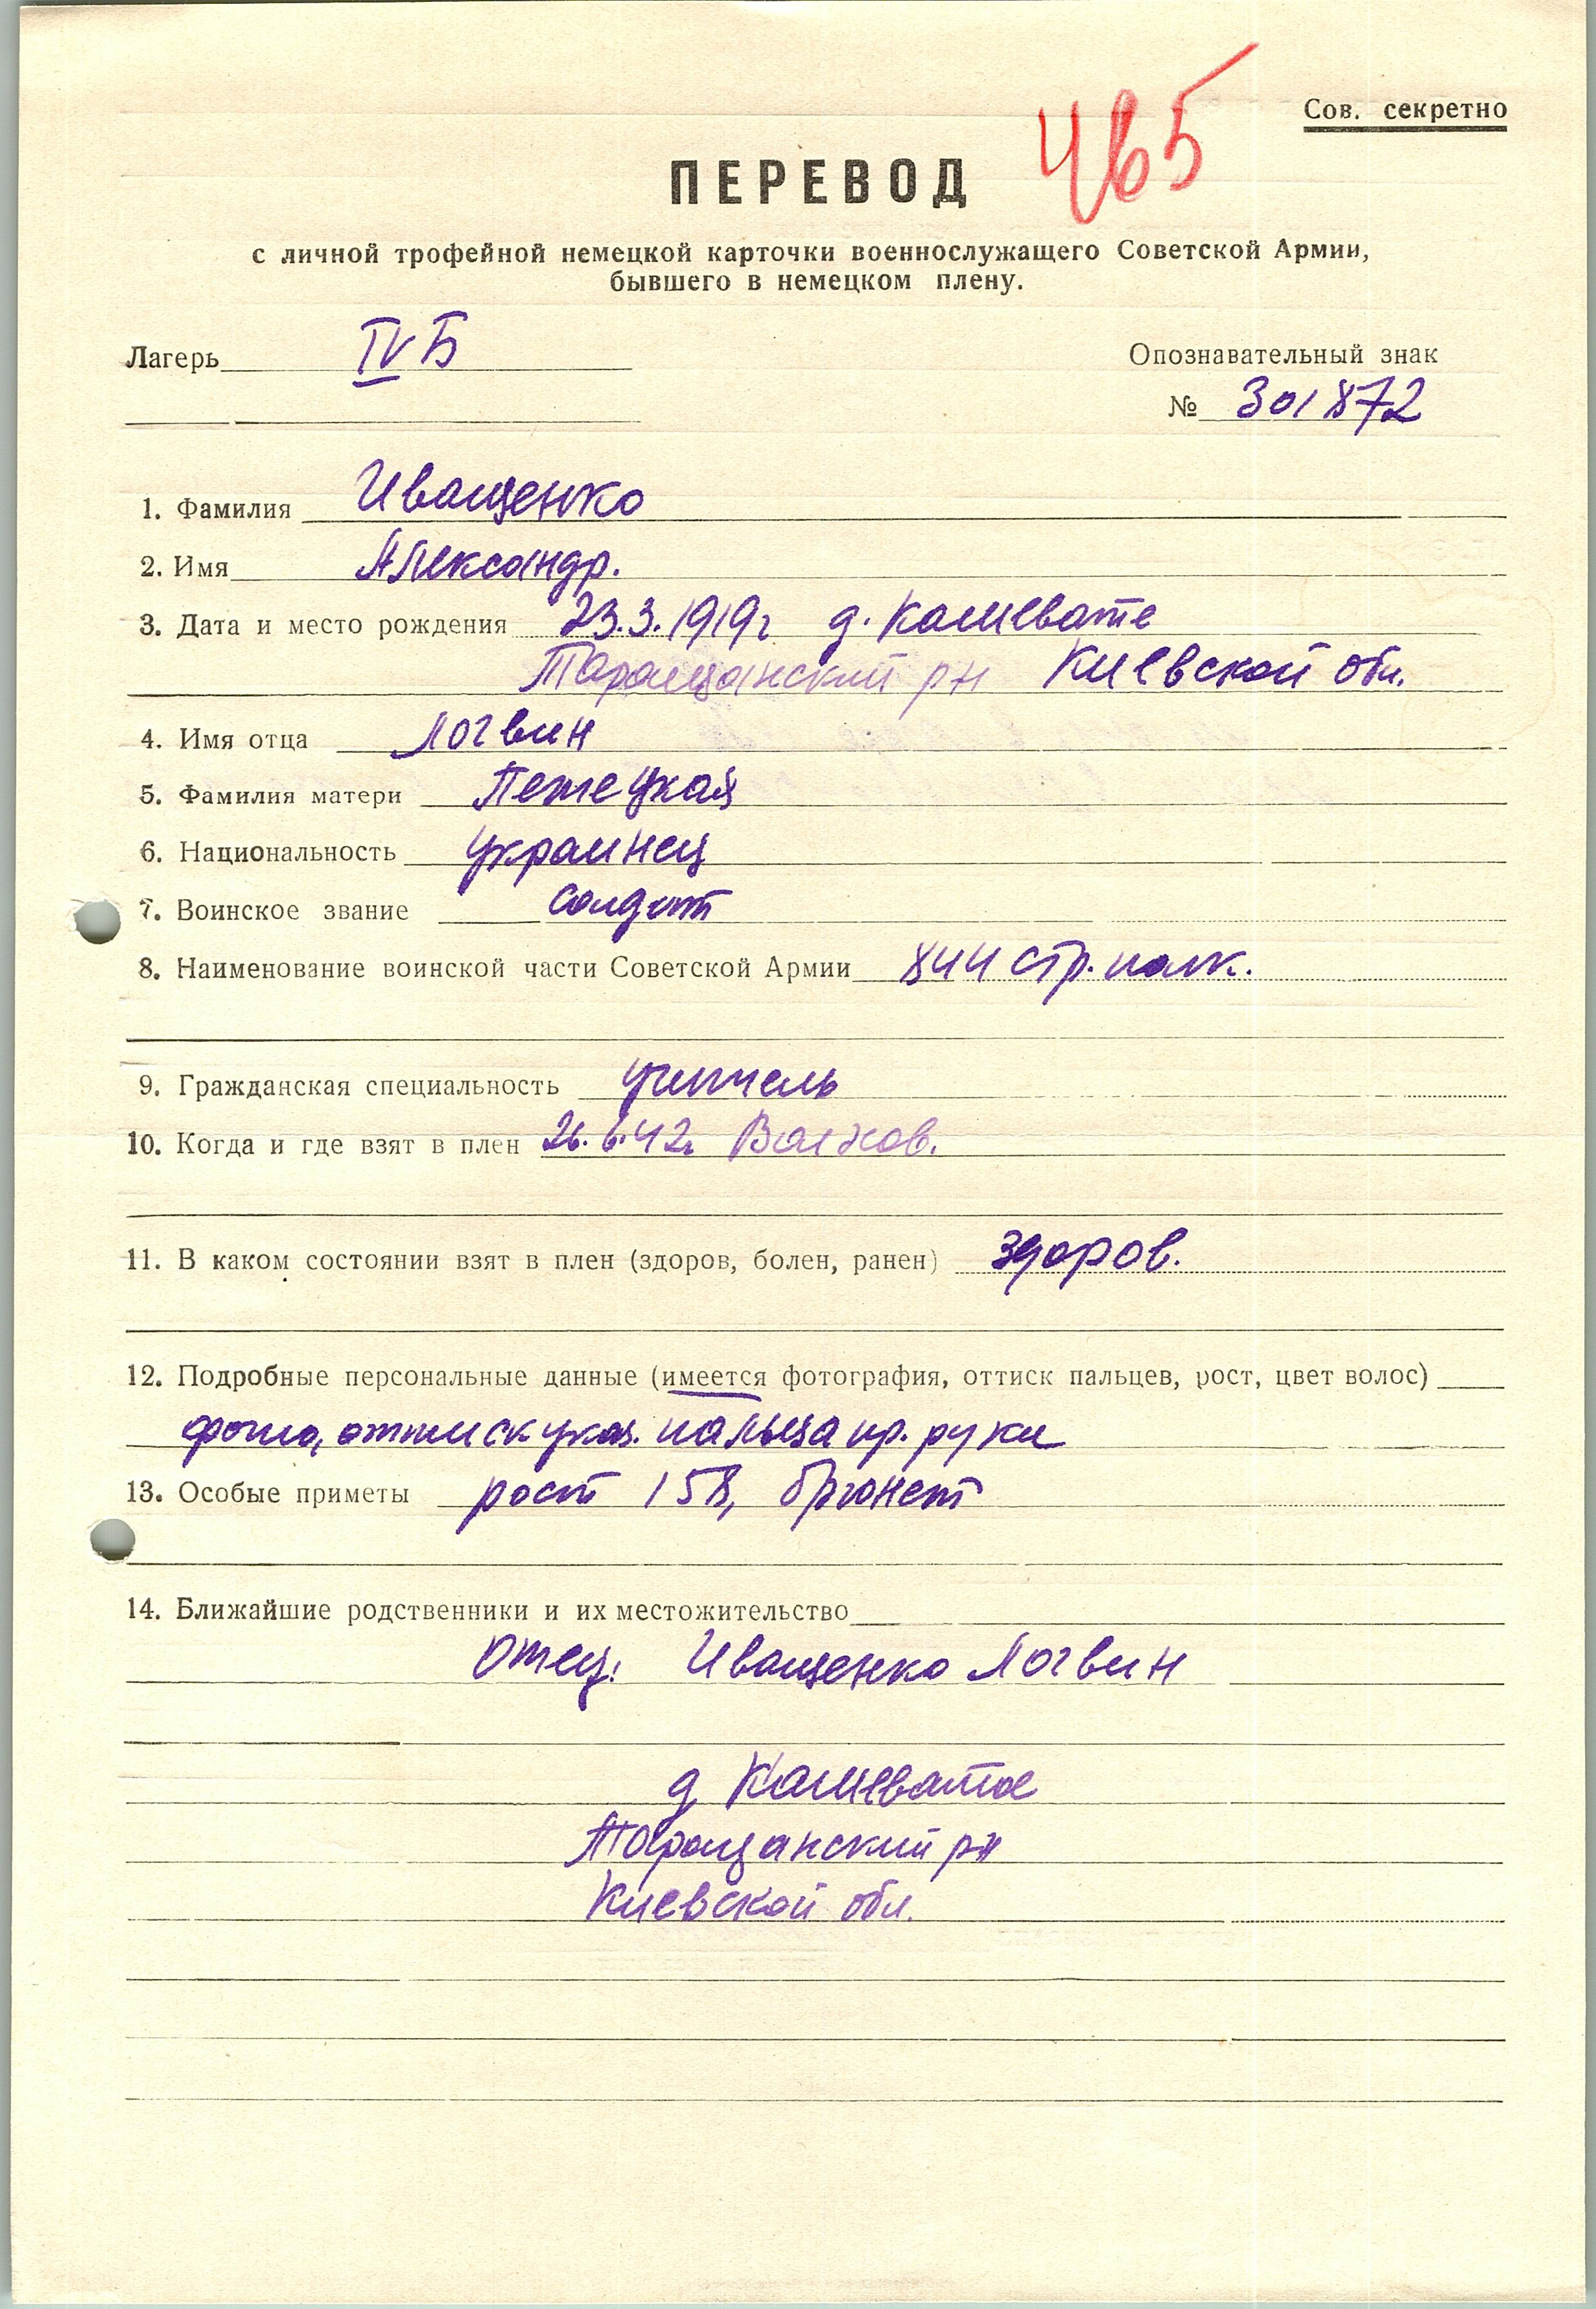 465
Сов. секретно
ПЕРЕВОД
с личной трофейной немецкой карточки военнослужащего Советской Армии,
бывшего в немецком плену.
Лагерь IV Б
Опознавательный знак
№ 301872
1. Фамилия Иващенко
2. Имя Александр.
3. Дата и место рождения 23.3.1919г д. Кашевате
Таращанский рн Киевской обл.
4. Имя отца Логвин
5. Фамилия матери
6. Национальность украинец
7. Воинское звание солдат
8. Наименование воинской части Советской Армии 844 стр. полк.
9. Гражданская специальность учитель
10. Когда и где взят в плен 26.6.42г Волхов.
11. В каком состоянии взят в плен (здоров, болен, ранен) здоров.
12. Подробные персональные данные (имеется фотография, оттиск пальцев, рост, цвет волос)
фото, оттиск указ. пальца пр. руки
13. Особые приметы рост 158, брюнет
14. Ближайшие родственники и их местожительство
Отец: Иващенко Логвин
д Кашеватое
Таращанский рн
Киевской обл.